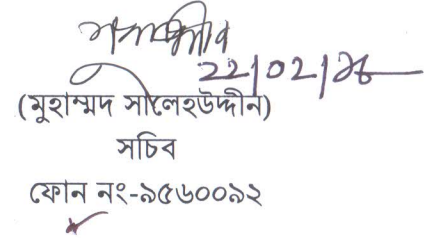 22/02/২৪
(মুহাম্মদ সালেহউদ্দীন)
সচিব
ফোন নং-৯৫৬০০৯২